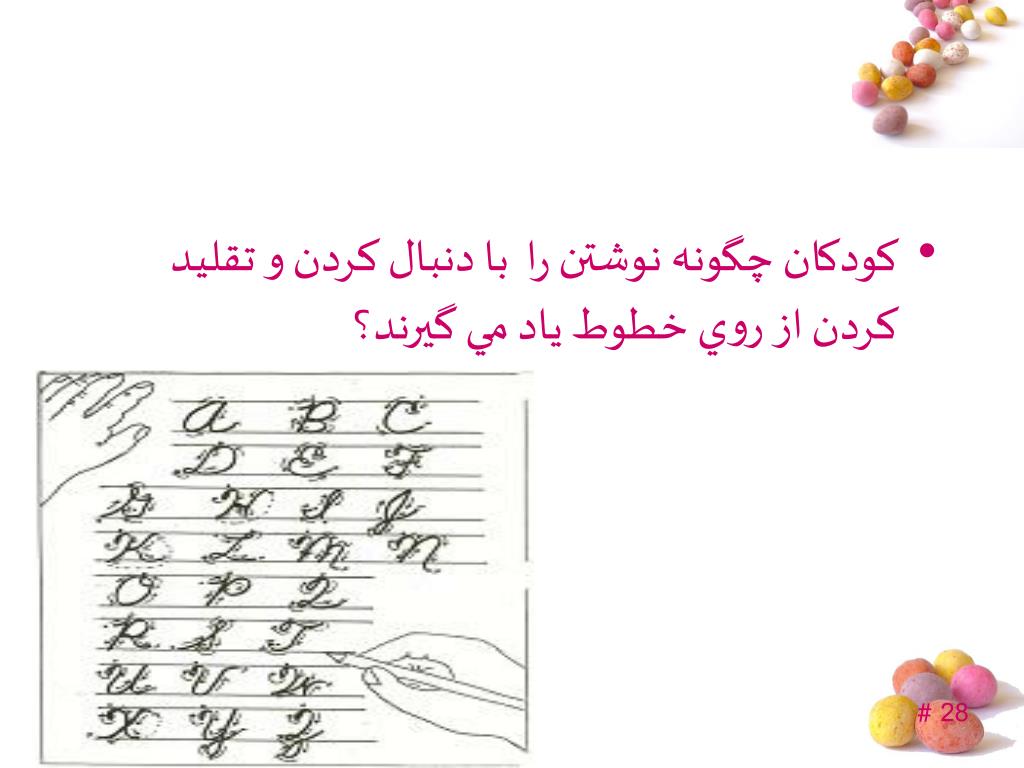 • کودکان چگونه نوشتن را با دنبال کردن و تقليد
کردن از روي خطوط ياد مي گيرند؟
A B C
D E F
G H I J
K L M N
O P Q
R S T
U V W
X Y Z
# 28